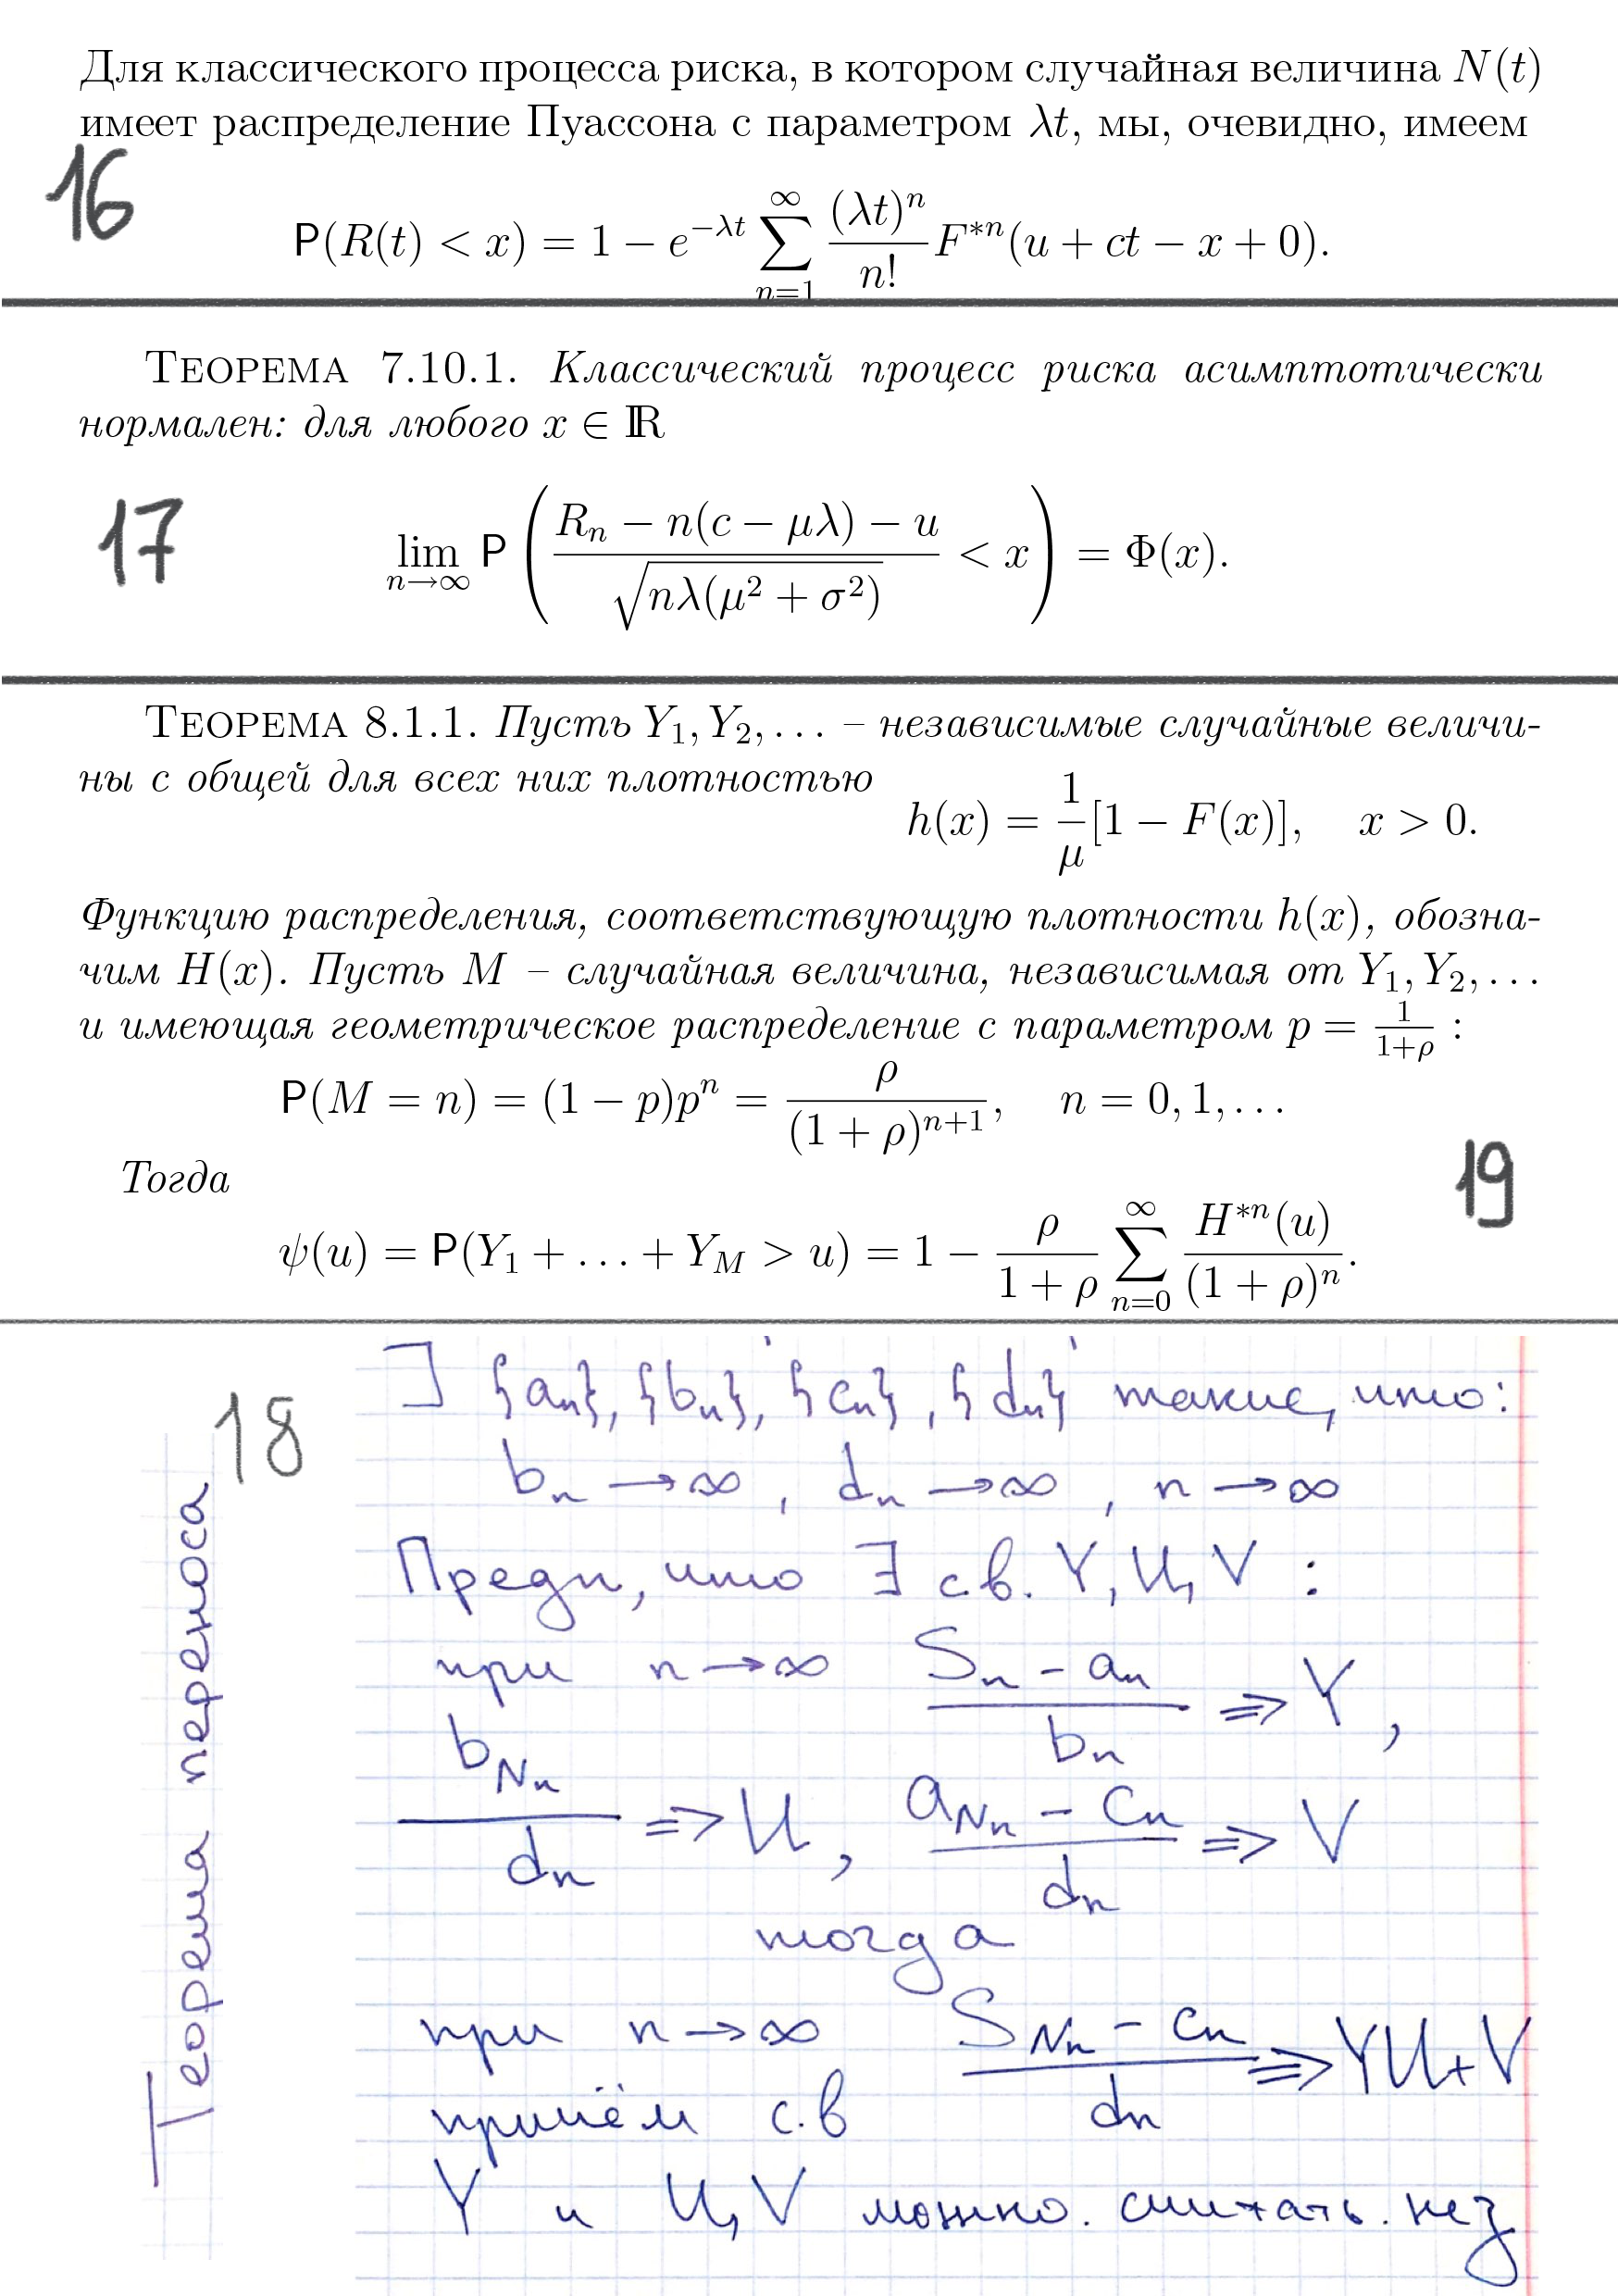 Для классического процесса риска, в котором случайная величина N(t)
имеет распределение Пуассона с параметром λt, мы, очевидно, имеем
16
P(R(t) < x) = 1 − e^{−λt} ∑_{n=1}^{∞} (λt)^n / n! F^{*n}(u + ct − x + 0).
Теорема 7.10.1. Классический процесс риска асимптотически
нормален: для любого x ∈ ℝ
17
lim_{n→∞} P( (R_n − n(c − μλ) − u) / √(nλ(μ² + σ²)) < x ) = Φ(x).
Теорема 8.1.1. Пусть Y_1, Y_2, . . . – независимые случайные величи-
ны с общей для всех них плотностью
h(x) = 1/μ [1 − F(x)], x > 0.
Функцию распределения, соответствующую плотности h(x), обозна-
чим H(x). Пусть M – случайная величина, независимая от Y_1, Y_2, . . .
и имеющая геометрическое распределение с параметром p = 1/(1+ρ) :
P(M = n) = (1 − p)p^n = ρ / (1 + ρ)^{n+1}, n = 0, 1, . . .
Тогда
19
ψ(u) = P(Y_1 + . . . + Y_M > u) = 1 − ρ/(1 + ρ) ∑_{n=0}^{∞} H^{*n}(u) / (1 + ρ)^n.
18
Теорема переноса
∃ {a_n}, {b_n}, {c_n}, {d_n} такие, что:
b_n → ∞, d_n → ∞, n → ∞
Предп, что ∃ с.в. Y, U, V :
при n → ∞ (S_n − a_n) / b_n ⇒ Y,
b_{N_n} / d_n ⇒ U, (a_{N_n} − c_n) / d_n ⇒ V
тогда
при n → ∞ (S_{N_n} − c_n) / d_n ⇒ YU + V
причём с.в
Y и U, V можно. считать. нез